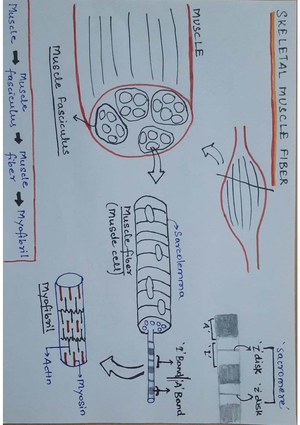 SKELETAL MUSCLE FIBER
MUSCLE
Muscle Fasciculus
Sarcolemma
Muscle fiber
(Muscle cell)
'I' Band
'A' Band
'Sacromere'
'Z' disk
'Z' disk
'A'
'I'
Myofibril
Myosin
Actin
Muscle → Muscle fasciculus → Muscle fiber → Myofibril